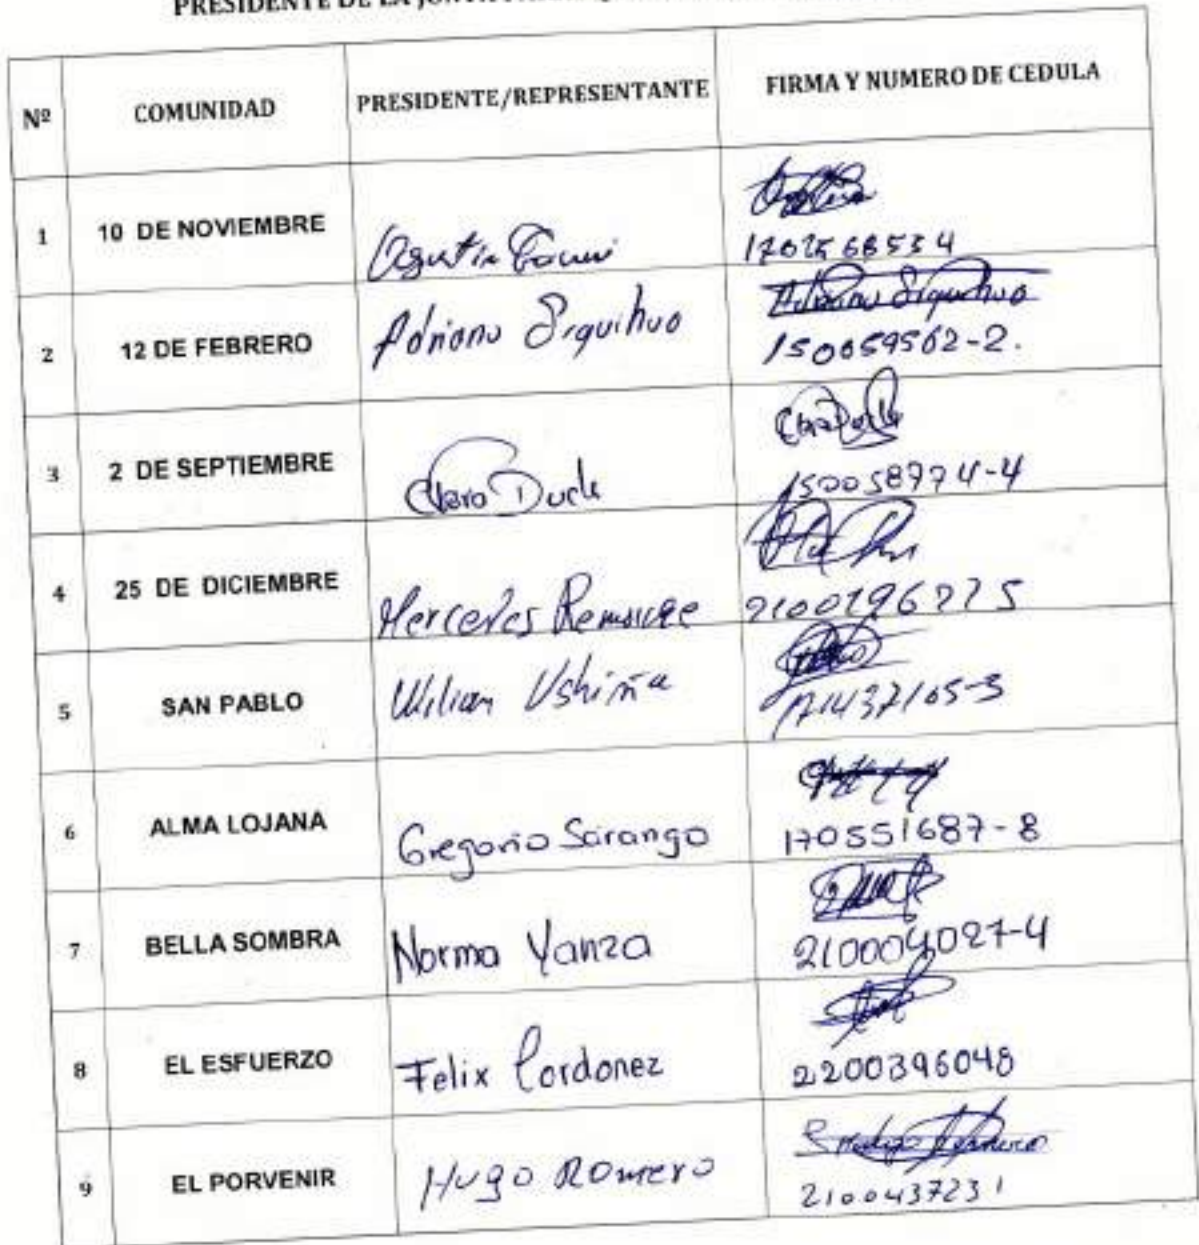 PRESIDENTE DE LA
Nº COMUNIDAD PRESIDENTE/REPRESENTANTE FIRMA Y NUMERO DE CEDULA
1 10 DE NOVIEMBRE Agustin
2 12 DE FEBRERO Adriano Siquihua 150059562-2.
3 2 DE SEPTIEMBRE Clara 150058774-4
4 25 DE DICIEMBRE Mercedes
5 SAN PABLO Wilian Ushiña 171437105-3
6 ALMA LOJANA Gregorio Sarango 170551687-8
7 BELLA SOMBRA Norma Yanza 210004027-4
8 EL ESFUERZO Felix Cordonez 2200396048
9 EL PORVENIR Hugo Romero 2100437231